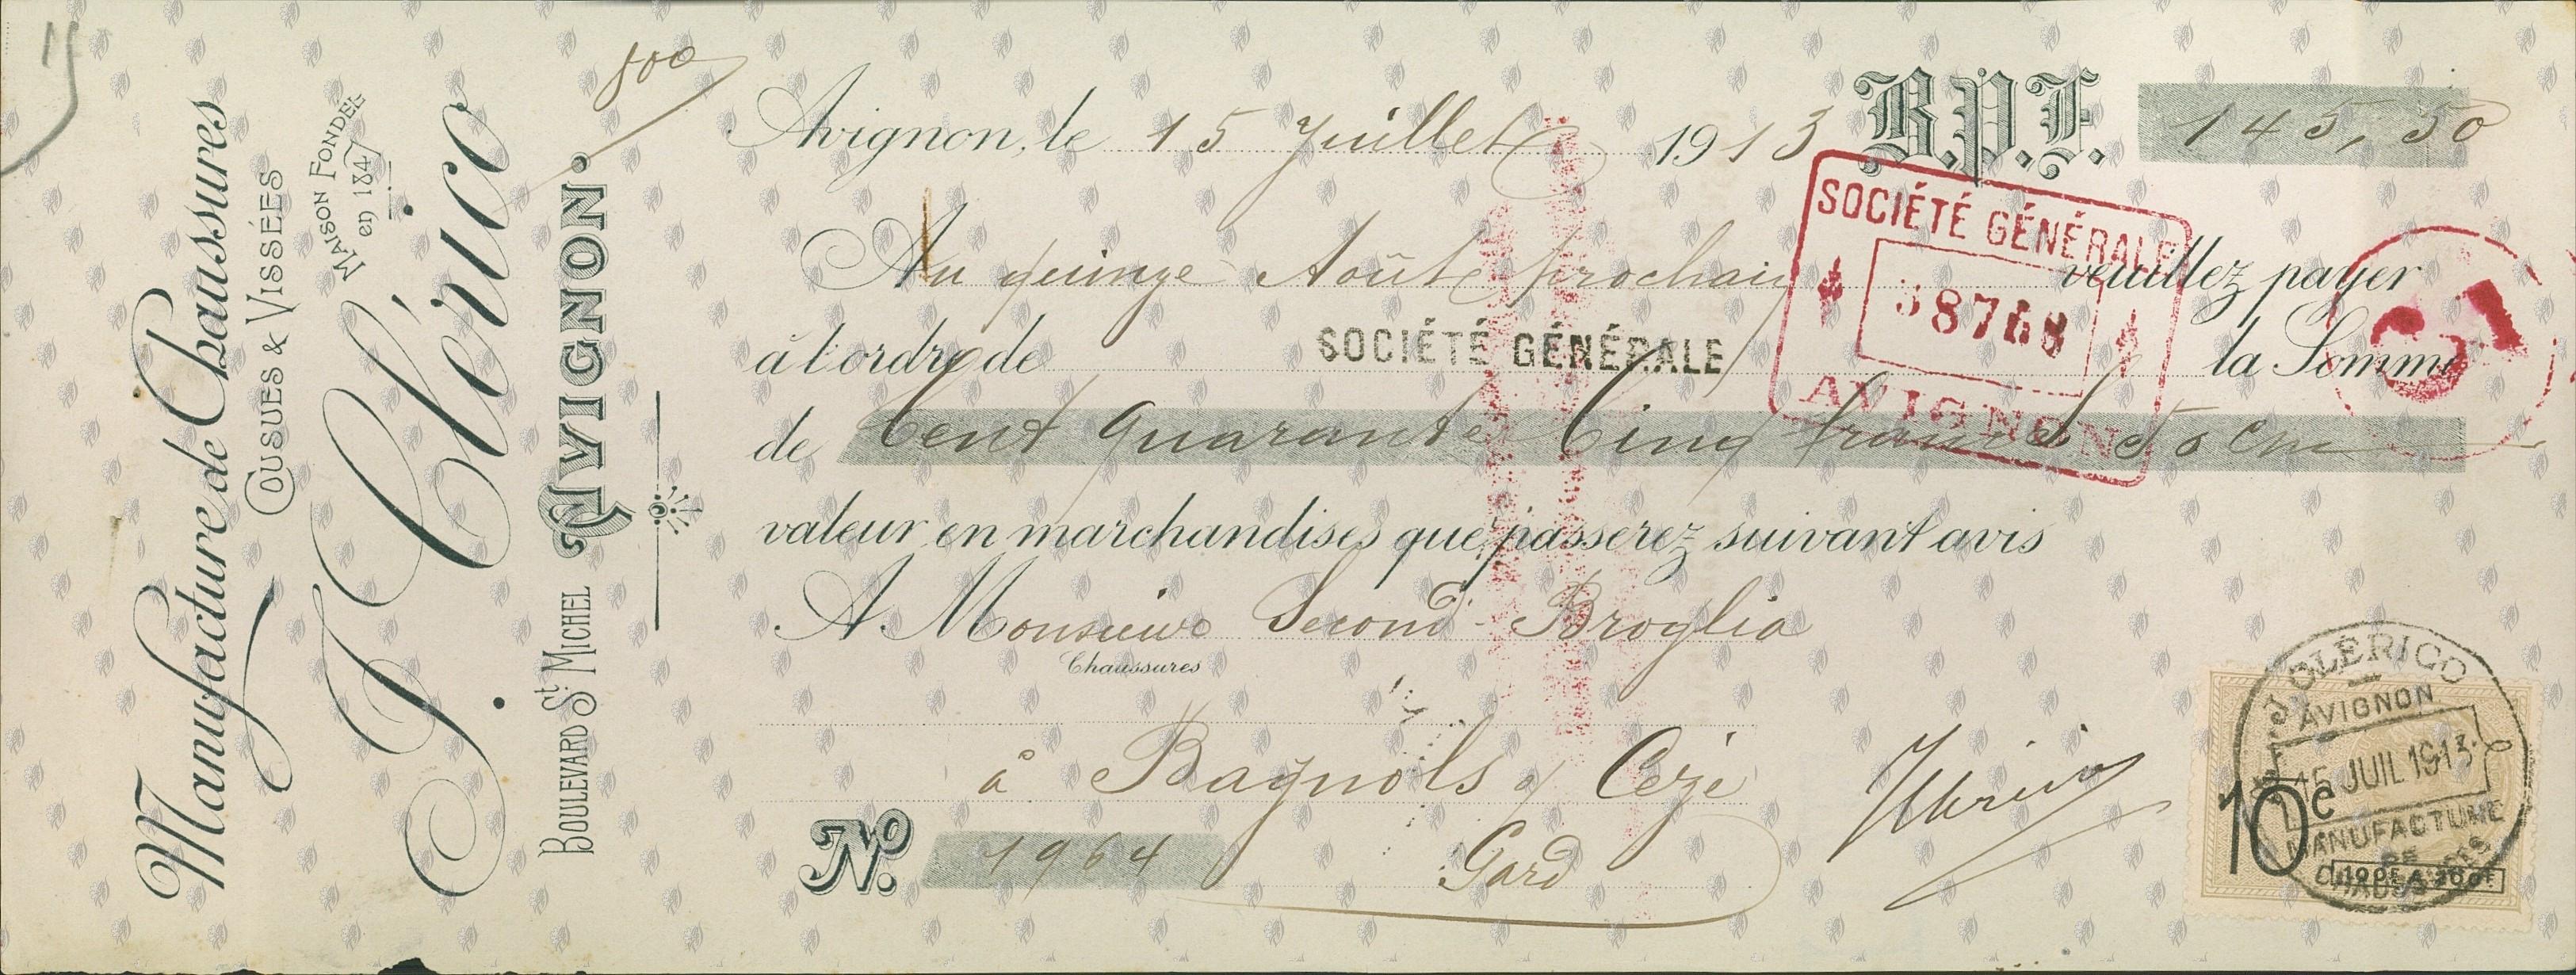 Manufacture de Chaussures
COUSUES & VISSÉES
MAISON FONDÉE
en 1847
J. Clérico
BOULEVARD St MICHEL AVIGNON.
800
Avignon, le 15 Juillet 1913 B.P.F. 145,50
Au quinze Août prochain veuillez payer
à l'ordre de SOCIÉTÉ GÉNÉRALE la Somme
de Cent quarante Cinq francs 50 cm
valeur en marchandises que passerez suivant avis
A Monsieur Second-Broglia
Chaussures
à Bagnols s/ Cèze
No. 1964 Gard
SOCIÉTÉ GÉNÉRALE
AVIGNON
J. CLÉRICO
AVIGNON
15 JUIL 1913
MANUFACTURE
DE
CHAUSSURES
10c
100F A 200F